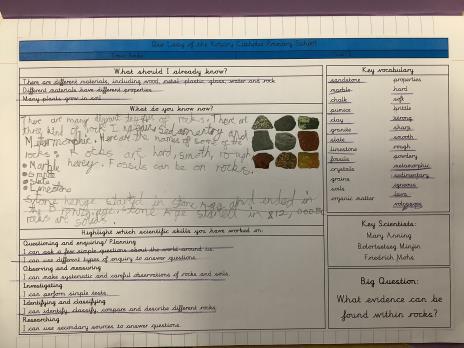 Our Lady of the Rosary Catholic Primary School
What should I already know?
There are different materials, including wood, metal, plastic, glass, water and rock
Different materials have different properties
Many plants grow in soil
What do you know now?
There are many different types of rocks. There are
three kind of rock
Sedimentary and
the names of some of the
rocks. Rocks are hard, smooth, rough
Marble heavy. Fossils can be on rocks.
Slate
Limestone
Stone henge started in stone age and ended in
the stone age started in
rocks are
Highlight which scientific skills you have worked on:
Questioning and enquiring/ Planning
I can ask a few simple questions about the world around us.
I can use different types of enquiry to answer questions.
Observing and measuring
I can make systematic and careful observations of rocks and soils.
Investigating
I can perform simple tests.
Identifying and classifying
I can identify, classify, compare and describe different rocks
Researching
I can use secondary sources to answer questions.
Key vocabulary
sandstone properties
marble hard
chalk soft
pumice brittle
clay strong
granite sharp
slate smooth
limestone rough
fossils powdery
crystals metamorphic
grains sedimentary
soils igneous
organic matter
Key Scientists:
Mary Anning
Bolortsetseg Minjin
Friedrich Mohs
Big Question:
What evidence can be
found within rocks?